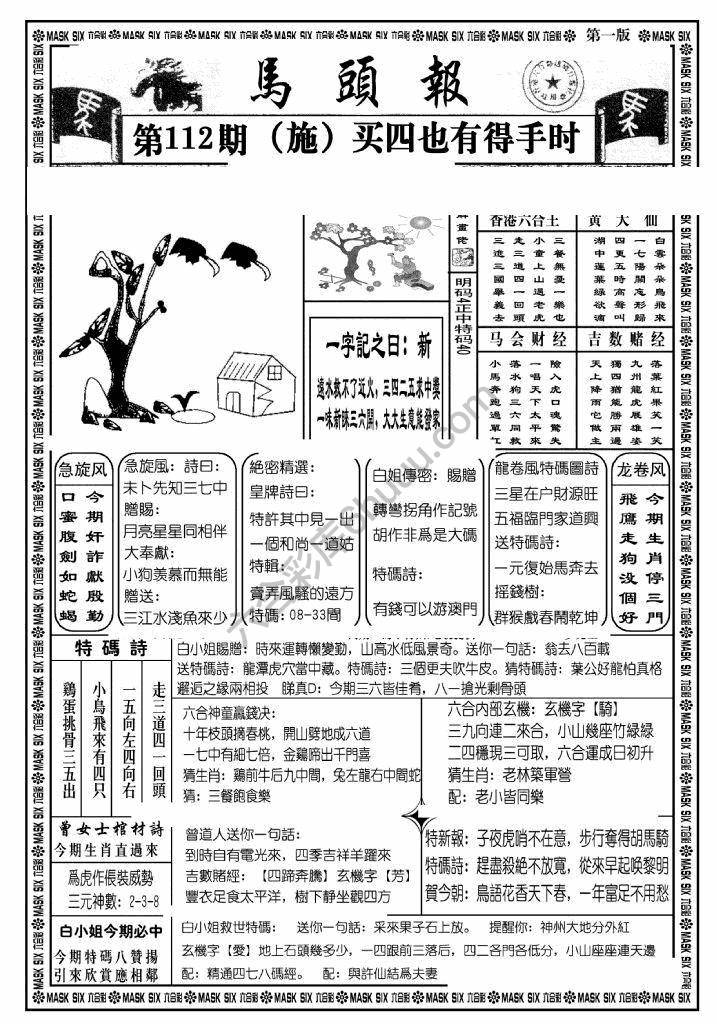 MASK SIX 六合彩
第一版
馬頭報
第112期（施）买四也有得手时
香港六合王
三進三國舉義去
走三道四一回頭
小童上山遇老虎
三餐無憂一樂也
黄大仙
湖中蓮葉綠欲滴
四更五時高聲叫
一七陽關忘形歸
白雲朵朵鳥飛來
明码4正中特码40
一字記之曰：新
遠水救不了近火，三四二五求中獎
一味新味三六開，大大生意能發家
马会财经
小馬奔跑過單
落水狗三六同救
一唱天下太平來
險入虎口魂驚失
吉数赌经
天上降雨它做主
獨四猶能勝兩邊
九州龍虎展雄姿
落葉紅果笑一笑
急旋风
今期奸詐獻殷勤
口蜜腹劍如蛇蝎
急旋風：詩曰：
未卜先知三七中
贈賜：
月亮星星同相伴
大奉獻：
小狗羡慕而無能
贈送：
三江水淺魚來少
絶密精選：
皇牌詩曰：
特許其中見一出
一個和尚一道姑
特輯：
賣弄風騷的遠方
特碼：08-33間
白姐傳密：賜贈
轉彎拐角作記號
胡作非爲是大碼
特碼詩：
有錢可以游澳門
龍卷風特碼圖詩
三星在户財源旺
五福臨門家道興
送特碼詩：
一元復始馬奔去
摇錢樹：
群猴戲春鬧乾坤
龙卷风
今期生肖停三門
飛鷹走狗没個好
特碼詩
走三道四一回頭
一五向左四向右
小鳥飛來有四只
鷄蛋挑骨三五出
白小姐賜贈：時來運轉懶變勤，山高水低風景奇。送你一句話：翁去八百載
送特碼詩：龍潭虎穴當中藏。特碼詩：三個更夫吹牛皮。猜特碼詩：葉公好龍怕真格
邂逅之缘兩相投　睇真D：今期三六皆佳肴，八一搶光剩骨頭
六合神童贏錢决：
十年枝頭摘春桃，開山劈地成六道
一七中有細七倍，金鷄啼出千門喜
猜生肖：鷄前牛后九中間，兔左龍右中間蛇
猜：三餐飽食樂
六合内部玄機：玄機字【騎】
三九向連二來合，小山幾座竹緑緑
二四穩現三可取，六合運成日初升
猜生肖：老林築軍營
配：老小皆同樂
曾女士棺材詩
今期生肖直過來
爲虎作倀裝威勢
三元神數：2-3-8
曾道人送你一句話：
到時自有電光來，四季吉祥羊躍來
吉數賭經：【四蹄奔騰】玄機字【芳】
豐衣足食太平洋，樹下静坐觀四方
特新報：子夜虎哨不在意，步行奪得胡馬騎
特碼詩：趕盡殺絶不放寬，從來早起唤黎明
賀今朝：鳥語花香天下春，一年富足不用愁
白小姐今期必中
今期特碼八贊揚
引來欣賞應相鄰
白小姐救世特碼：　送你一句話：采來果子石上放。　提醒你：神州大地分外紅
玄機字【愛】地上石頭幾多少，一四跟前三落后，四二各門各低分，小山座座連天邊
配：精通四七八碼經。　配：與許仙結爲夫妻